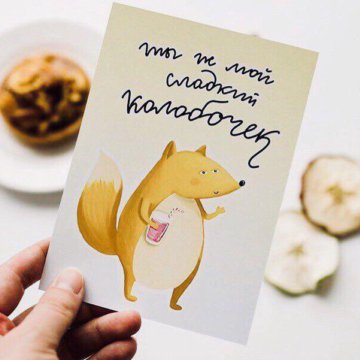 ты же мой
сладкий
колобочек